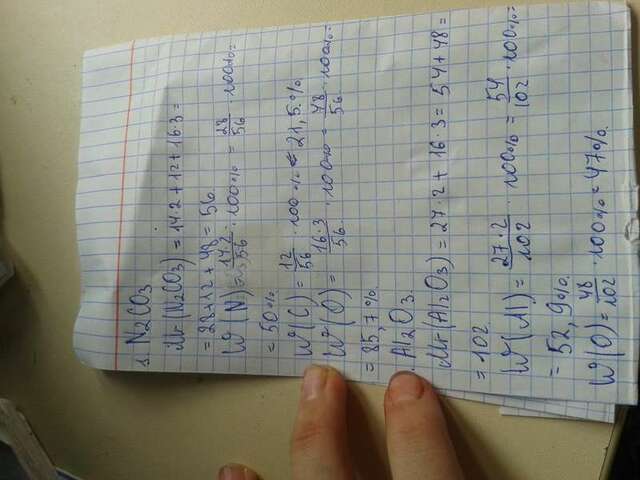 1. N2CO3
Mr (N2CO3) = 14·2 + 12 + 16·3 =
= 28 + 12 + 48 = 56
W (N) = 14·2/56 · 100% = 28/56 · 100% =
= 50%
W (C) = 12/56 · 100% = 21,5%
W (O) = 16·3/56 · 100% = 48/56 · 100% =
= 85,7%.
Al2O3.
Mr (Al2O3) = 27·2 + 16·3 = 54 + 48 =
= 102
W (Al) = 27·2/102 · 100% = 54/102 · 100% =
= 52,9%.
W (O) = 48/102 · 100% = 47%.